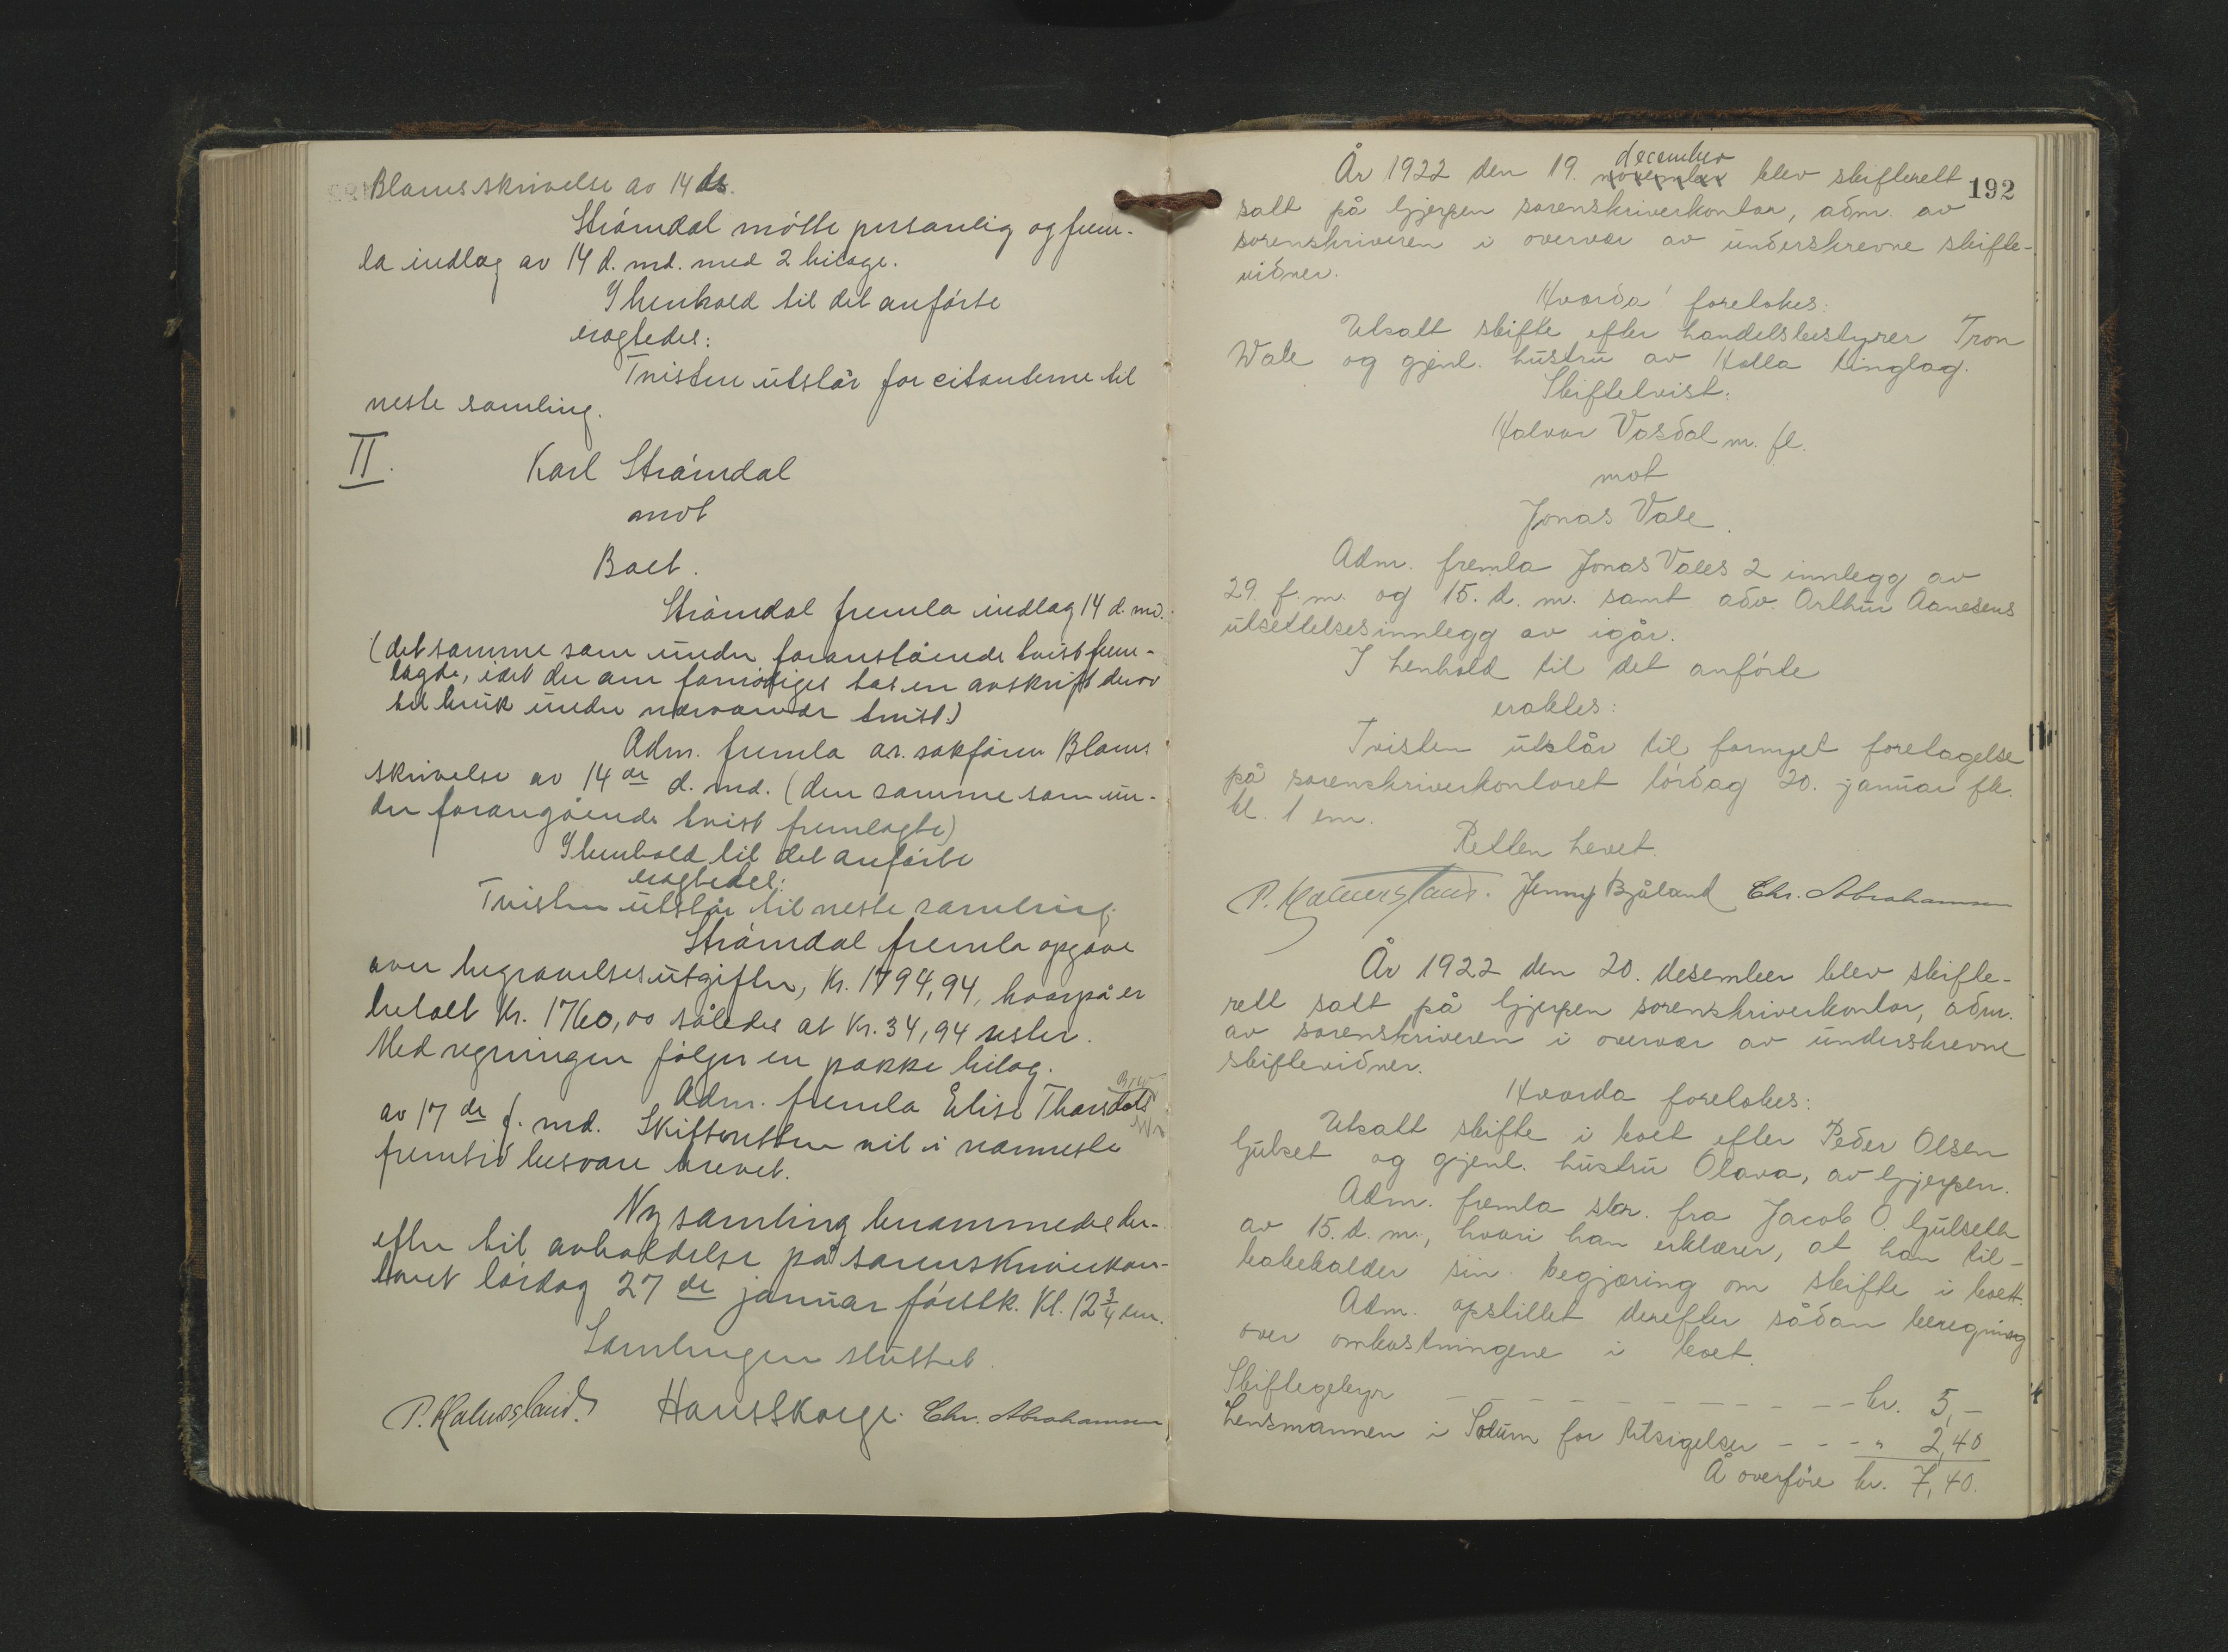 Blams skrivelse av 14 ds.
Strømdal møtte personlig og frem-
la indlæg av 14 d. md. med 2 bilage.
I henhold til det anførte
eragtedes:
Tvisten utstår for citanterne til
neste samling.
II. Karl Strømdal
mot
Boet.
Strømdal fremla indlæg 14 d. md.
(det samme som under foranstående tvist frem-
lagde, idet der om fornødiges tas en avskrift derav
til bruk under nærværende tvist.)
Adm. fremla o.r. sakfører Blams
skrivelse av 14 de d. md. (den samme som un-
der forangående tvist fremlagte)
I henhold til det anførte
eragtedes:
Tvisten utstår til neste samling.
Strømdal fremla opgave
over begravelsesutgifter, Kr. 1794,94, hvorpå er
betalt Kr. 1760,00 således at Kr. 34,94 rester.
Med regningen følger en pakke bilag.
Adm. fremla Elise Thorsdals brev
av 17 de f. md. Skifteretten vil i nærmeste
fremtid besvare brevet.
Ny samling berammedes der-
efter til avholdelse på sorenskriverkon-
toret lørdag 27 de januar førstk. Kl. 12 3/4 em.
Samlingen sluttet.
P. Holmesland. Hans Skorge. Chr. Abrahamsen
192
År 1922 den 19. november december blev skifterett
satt på Gjerpen sorenskriverkontor, adm. av
sorenskriveren i overvær av underskrevne skifte-
vidner.
Hvorda! foretokes:
Utsatt skifte efter handelsbestyrer Tron
Wale og gjenl. hustru av Holla tinglag.
Skiftetvist:
Halvor Vasdal m. fl.
mot
Jonas Vale.
Adm. fremla Jonas Vales 2 innlegg av
29. f. m. og 15. d. m. samt adv. Arthur Aanesens
utsettelsesinnlegg av igår.
I henhold til det anførte
eraktes:
Tvisten utstår til fornyet foretagelse
på sorenskriverkontoret lørdag 20. januar fk.
kl. 1 em.
Retten hevet.
P. Holmesland. Jenny Bjåland Chr. Abrahamsen
År 1922 den 20. desember blev skifte-
rett satt på Gjerpen sorenskriverkontor, adm.
av sorenskriveren i overvær av underskrevne
skiftevidner.
Hvorda foretokes:
Utsatt skifte i boet efter Peder Olsen
Gjulset og gjenl. hustru Olava, av Gjerpen.
Adm. fremla skr. fra Jacob O. Gjulseth
av 15. d. m., hvori han erklærer, at han til-
bakekalder sin begjæring om skifte i boett.
Adm. opstillet derefter sådan beregning
over omkostningene i boet.
Skiftegebyr - - - - - - - - - - - kr. 5,-
Lensmannen i Solum for tilsigelser - - - " 2,40
Å overføre kr. 7,40.